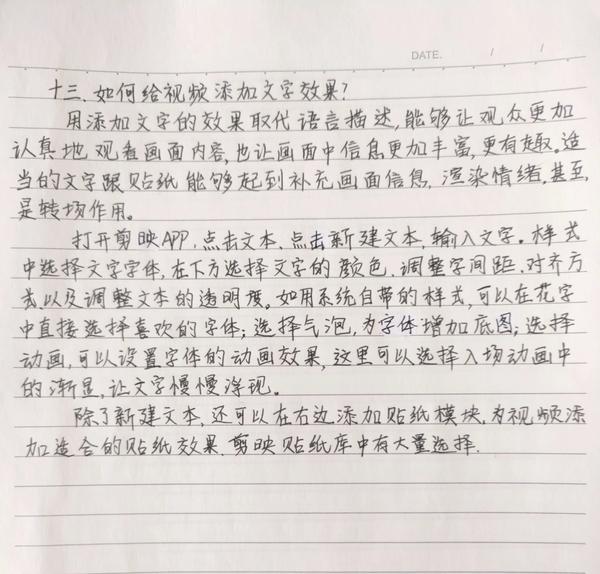 DATE. / /
十三.如何给视频添加文字效果?
用添加文字的效果取代语言描述,能够让观众更加
认真地观看画面内容,也让画面中信息更加丰富,更有趣。适
当的文字跟贴纸能够起到补充画面信息,渲染情绪。甚至
是转场作用。
打开剪映APP,点击文本,点击新建文本,输入文字。样式
中选择文字字体,在下方选择文字的颜色,调整字间距,对齐方
式以及调整文本的透明度。如用系统自带的样式,可以在花字
中直接选择喜欢的字体;选择气泡,为字体增加底图;选择
动画,可以设置字体的动画效果,这里可以选择入场动画中
的渐显,让文字慢慢浮现。
除了新建文本,还可以在右边添加贴纸模块,为视频添
加适合的贴纸效果.剪映贴纸库中有大量选择.